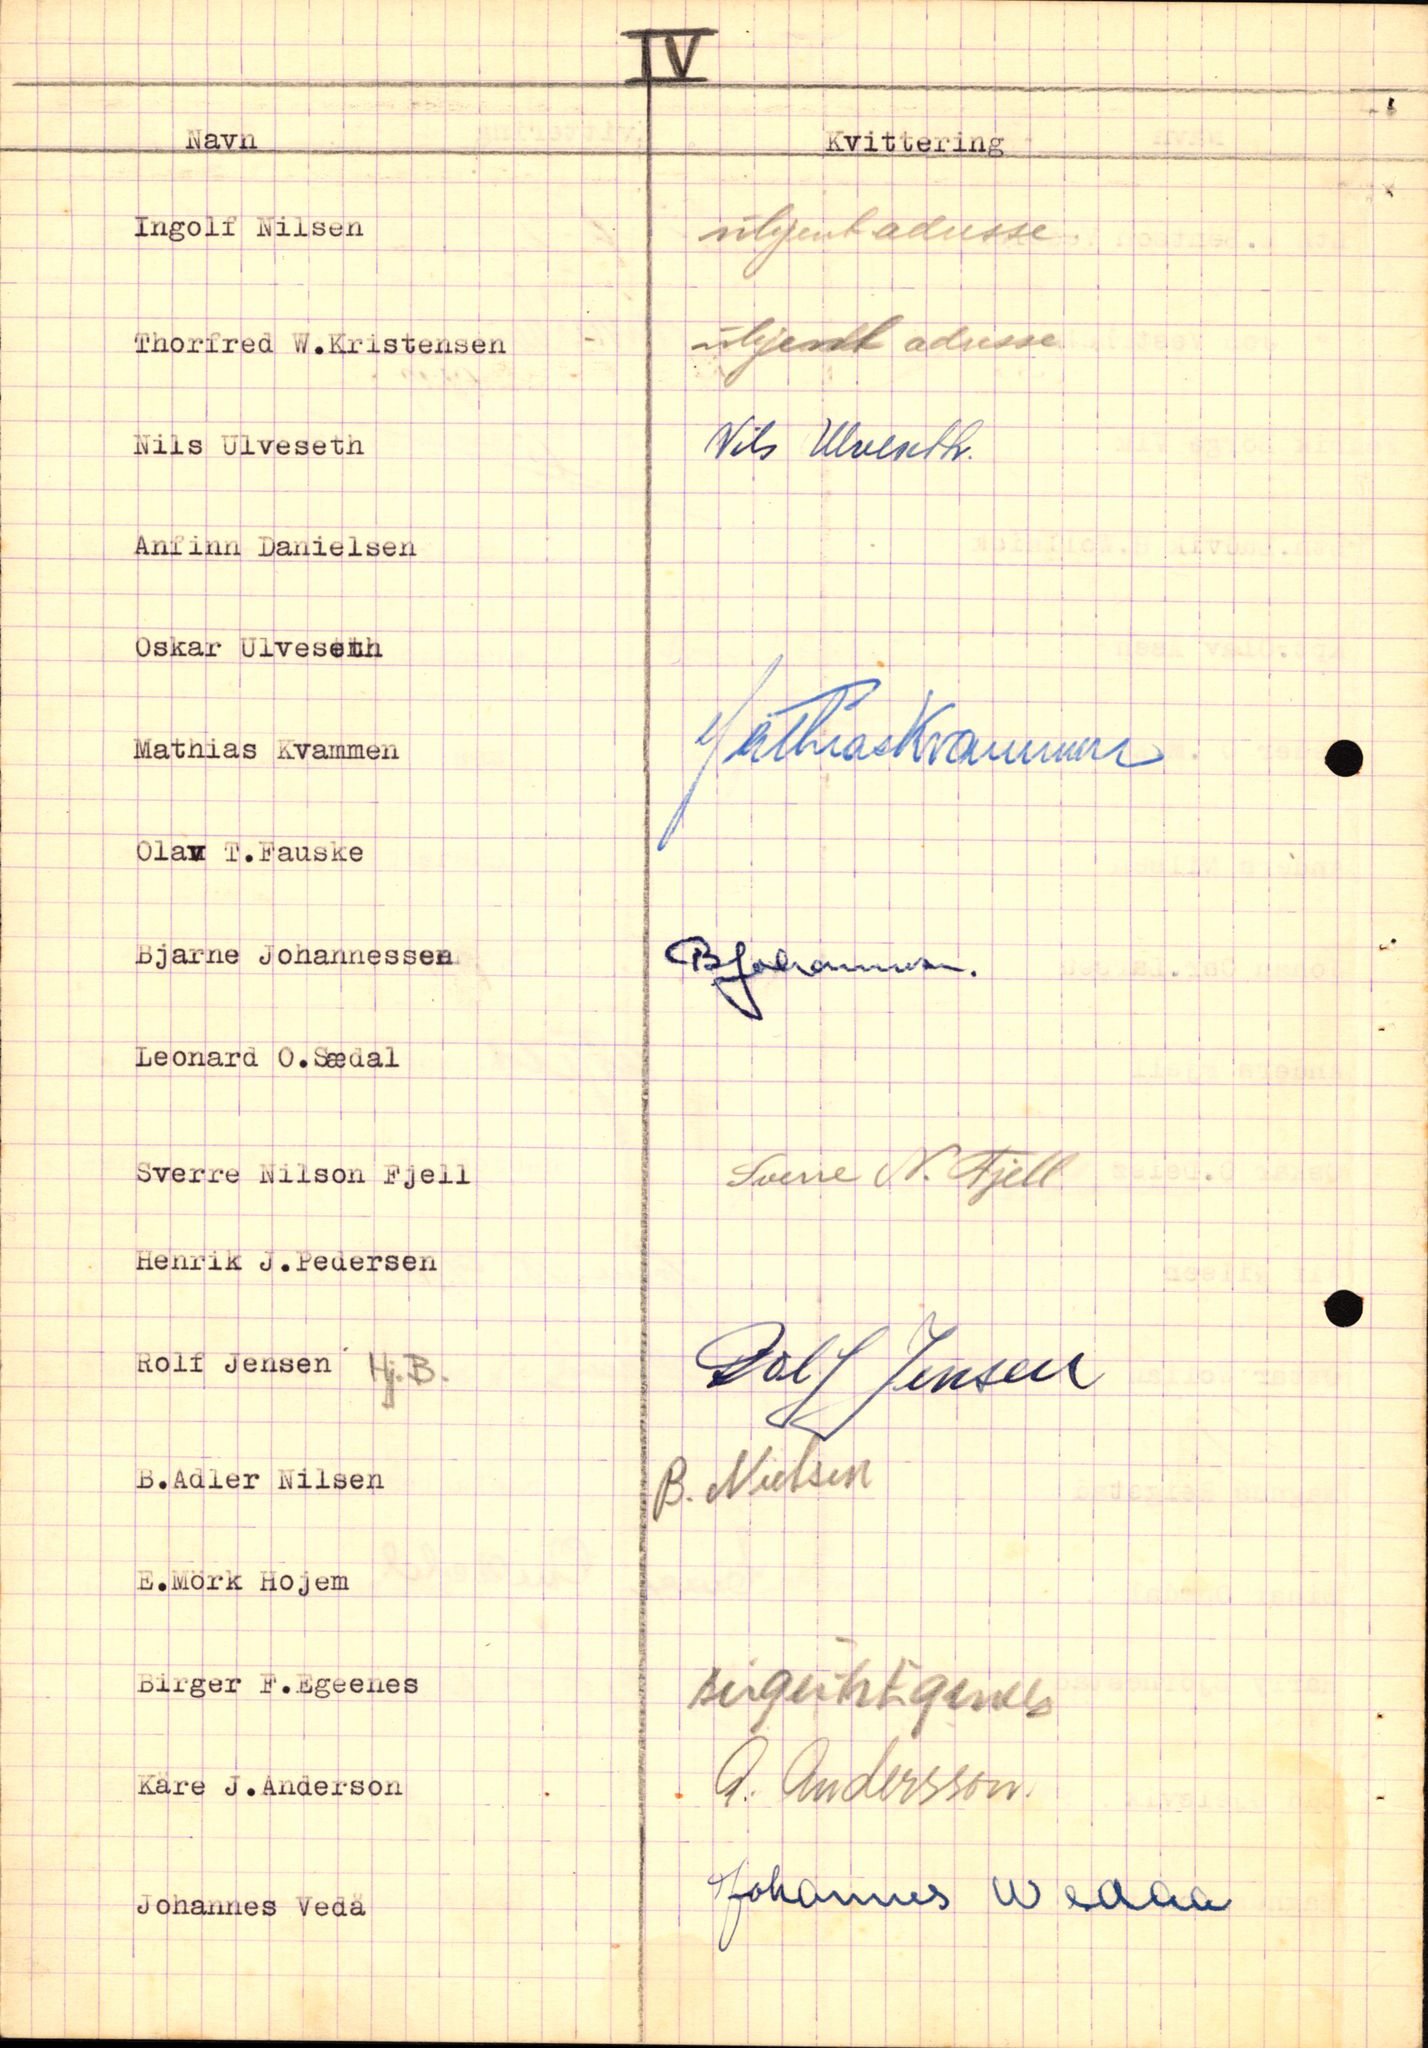 IV
Navn Kvittering
Ingolf Nilsen ukjent adresse
Thorfred W.Kristensen ukjent adresse
Nils Ulveseth Nils Ulveseth.
Anfinn Danielsen
Oskar Ulveseth
Mathias Kvammen Mathias Kvammen
Olav T.Fauske
Bjarne Johannessen B Johannessen.
Leonard O.Sædal
Sverre Nilson Fjell Sverre N. Fjell
Henrik J.Pedersen
Rolf Jensen Hj.B. Rolf Jensen
B.Adler Nilsen B. Nielsen
E.Mörk Hojem
Birger F.Egeenes Birger Egenes
Kåre J.Anderson A. Andersson.
Johannes Vedå Johannes Wedaa